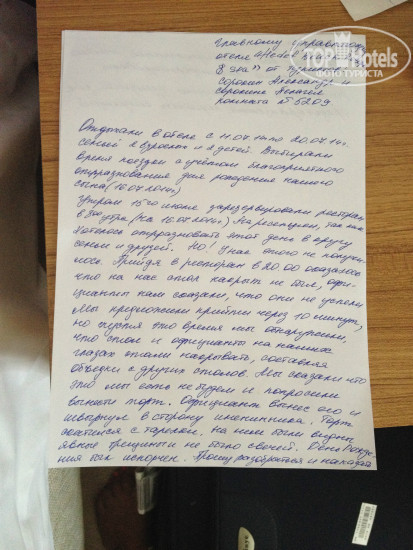 TopHotels
ФОТО ТУРИСТА
Главному управляющ
отеля
от туристов
Сорокин Александр и
Сорокина
комната № 5209
Отдыхали в отеле с 11.07.14 по 20.07.14г.
семьей 2 взрослых и 2 детей. Выбирали
время поездки с учётом благоприятного
отпразднования дня рождения нашего
сына (16.07.2014г)
Утром 15го июля зарезервировали ресторан
в 9:00 утра (на 16.07.2014г.) На ресепшен, так как
хотелось отпраздновать этот день в кругу
семьи и друзей. Но! У нас этого не получи-
лось. Прийдя в ресторан в 20.00 оказалось
что на нас стол накрыт не был, офи-
цианты нам сказали, что они не успели
Мы предложили прийти через 10 минут,
но спустя это время мы обнаружили,
что стол и официанты на наших
глазах стали накрывать, составляя
объедки с других столов. Мы сказали что
это мы есть не будем и попросили
вынести торт. Официант вынес его и
швырнул в сторону именинника. Торт
скатился с тарелки. На нем были видны
явные трещины и не было свечей. День Рожде-
ния был испорчен. Прошу разобраться и наказа